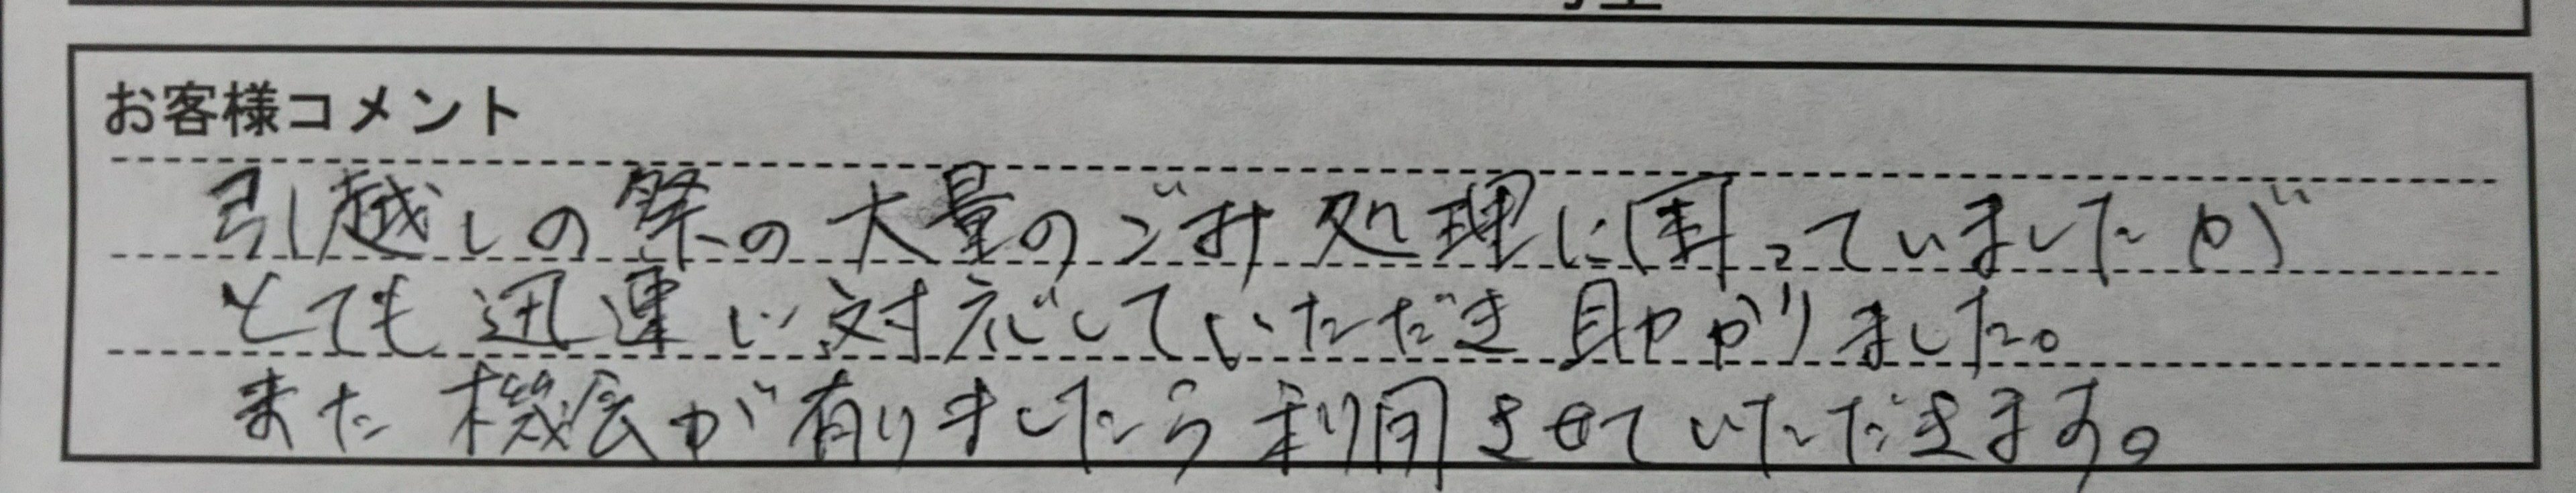 お客様コメント
引越しの祭の大量のごみ処理に困っていましたが
とても迅速に対応していただき助かりました。
また機会が有りましたら利用させていただきます。